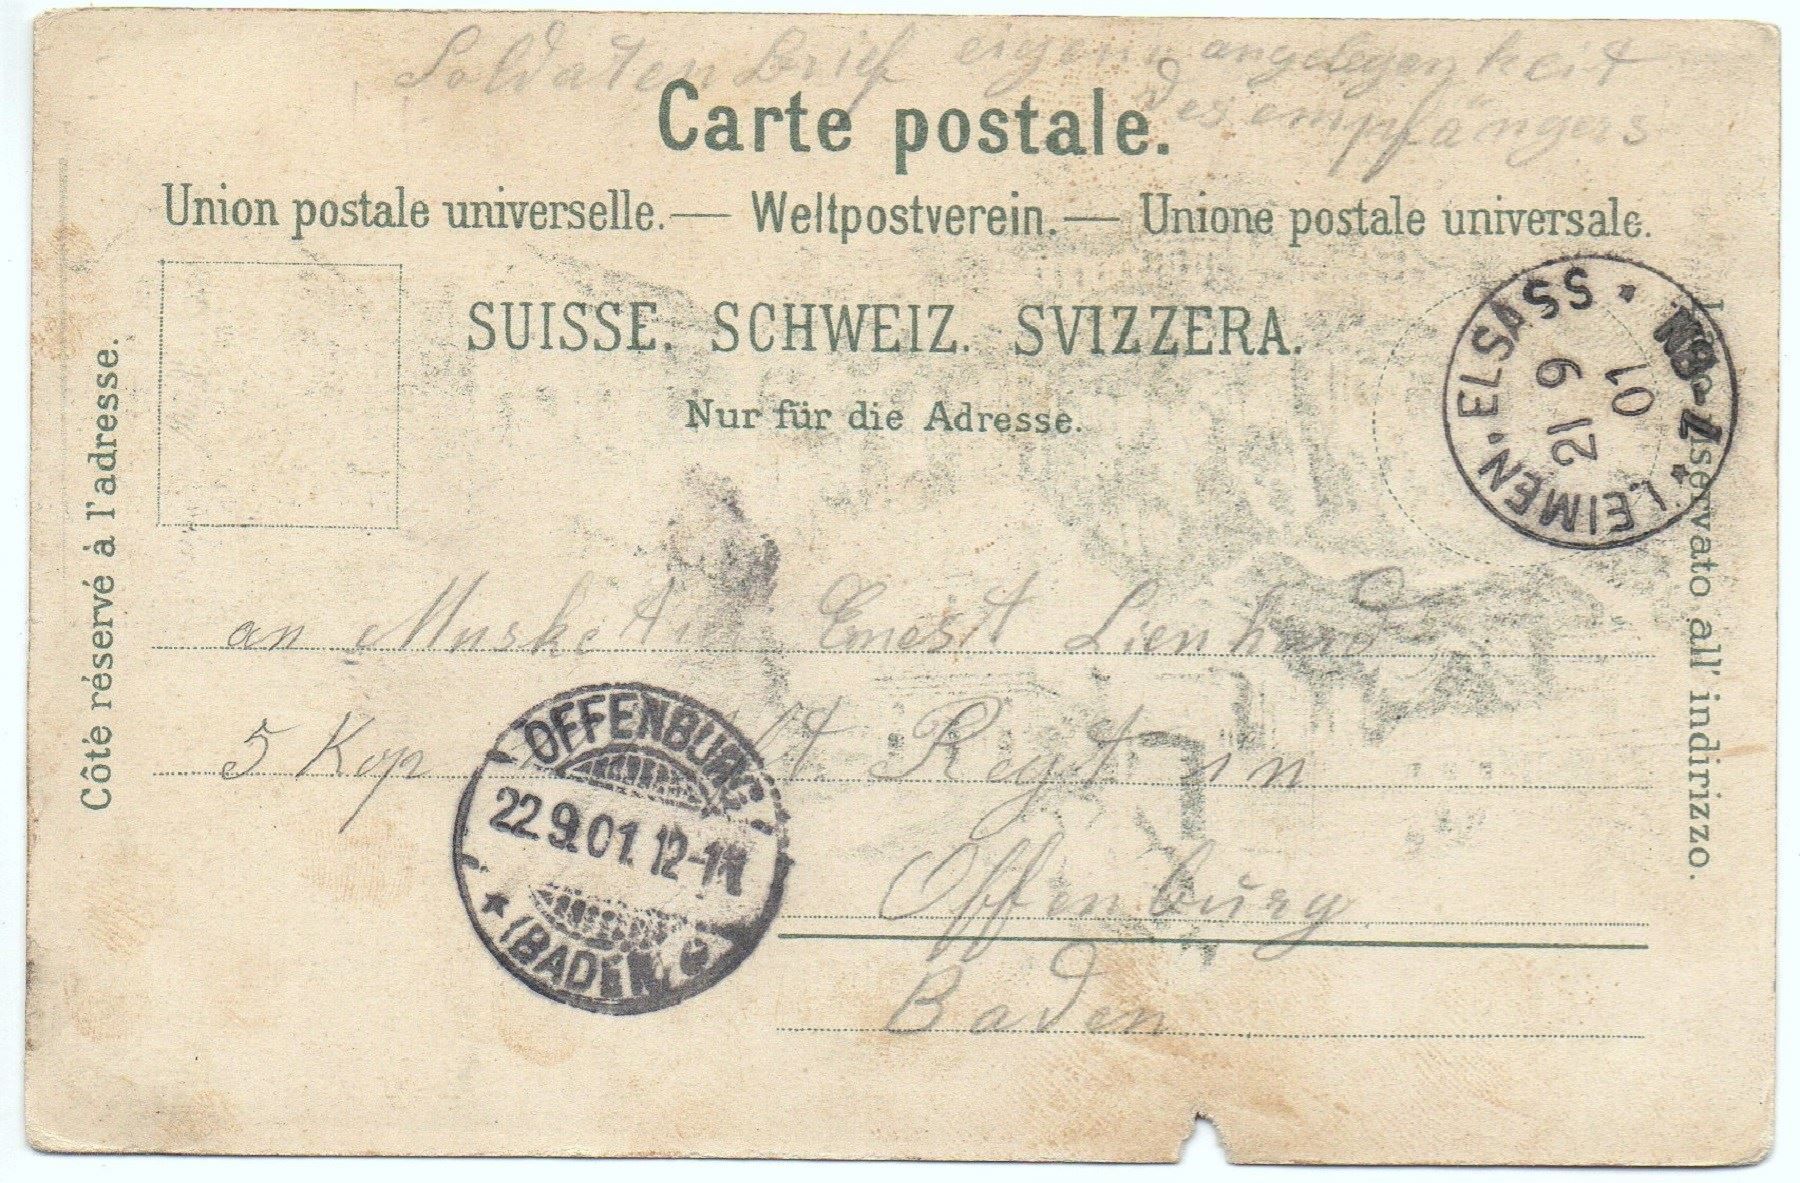 Soldatenbrief eigene angelegenheit
des empfängers
Carte postale.
Union postale universelle. — Weltpostverein. — Unione postale universale.
SUISSE. SCHWEIZ. SVIZZERA.
Nur für die Adresse.
Côté réservé à l'adresse.
Lato riservato all' indirizzo.
LEIMEN, ELSASS
21 9
01
7-8N
an Musketier Ernest Lienhard
5 Kop Regt in
Offenburg
Baden
OFFENBURG
22 9.01. 12-1N
(BADEN)